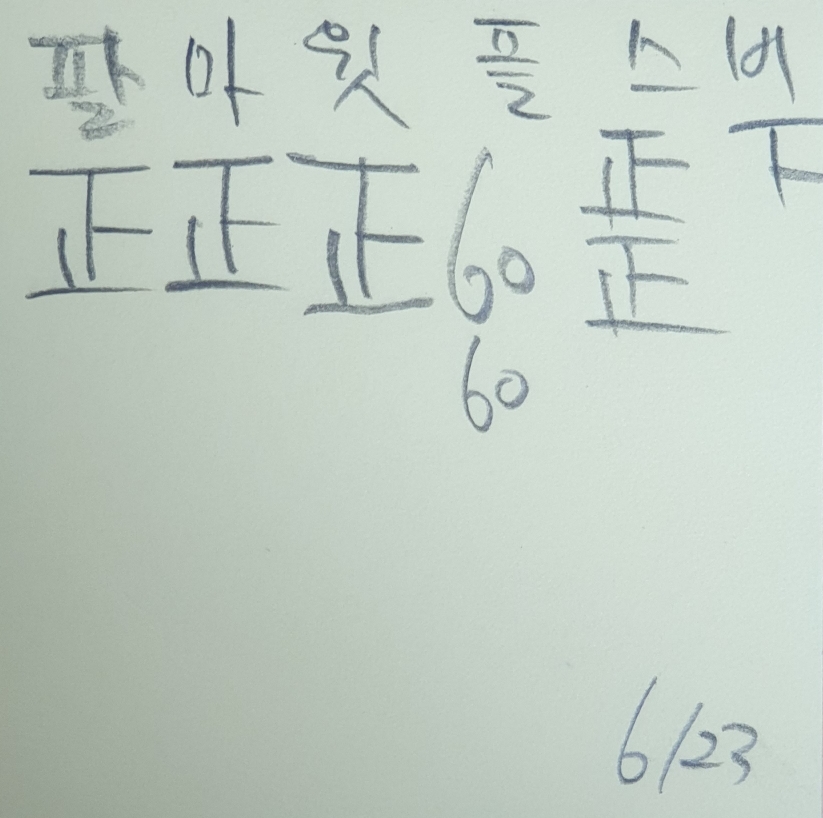 팔 아 윗 플 스 버
正 正 正 60 正 丅
60 正
6/23